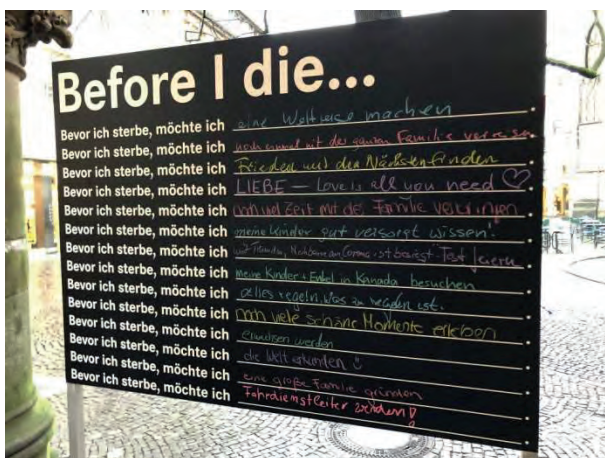 Before I die...
Bevor ich sterbe, möchte ich eine Weltreise machen
Bevor ich sterbe, möchte ich noch einmal mit der ganzen Familie verreisen
Bevor ich sterbe, möchte ich Frieden mit den Nächsten finden
Bevor ich sterbe, möchte ich LIEBE – Love is all you need ♡
Bevor ich sterbe, möchte ich noch viel Zeit mit der Familie verbringen
Bevor ich sterbe, möchte ich meine Kinder gut versorgt wissen.
Bevor ich sterbe, möchte ich Nachbarn Corona besiegt Fest feiern
Bevor ich sterbe, möchte ich meine Kinder + Enkel in Kanada besuchen
Bevor ich sterbe, möchte ich alles regeln, was zu regeln ist.
Bevor ich sterbe, möchte ich noch viele schöne Momente erleben
Bevor ich sterbe, möchte ich erwachsen werden
Bevor ich sterbe, möchte ich die Welt erkunden
Bevor ich sterbe, möchte ich eine große Familie gründen
Bevor ich sterbe, möchte ich Fahrdienstleiter werden!